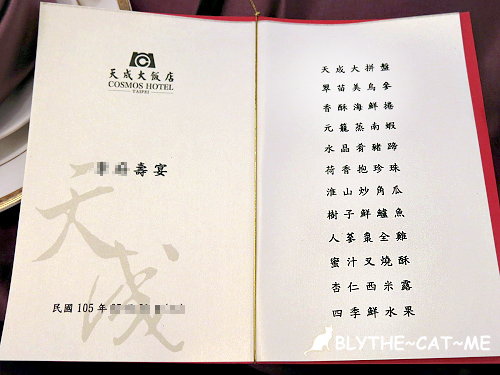 天成大飯店
COSMOS HOTEL
TAIPEI
壽宴
天成
民國 105 年
天成大拼盤
翠苗美烏參
香酥海鮮捲
元籠蒸南蝦
水晶肴豬蹄
荷香抱珍珠
淮山炒角瓜
樹子鮮鱸魚
人蔘燉全雞
蜜汁叉燒酥
杏仁西米露
四季鮮水果
BLYTHE~CAT~ME